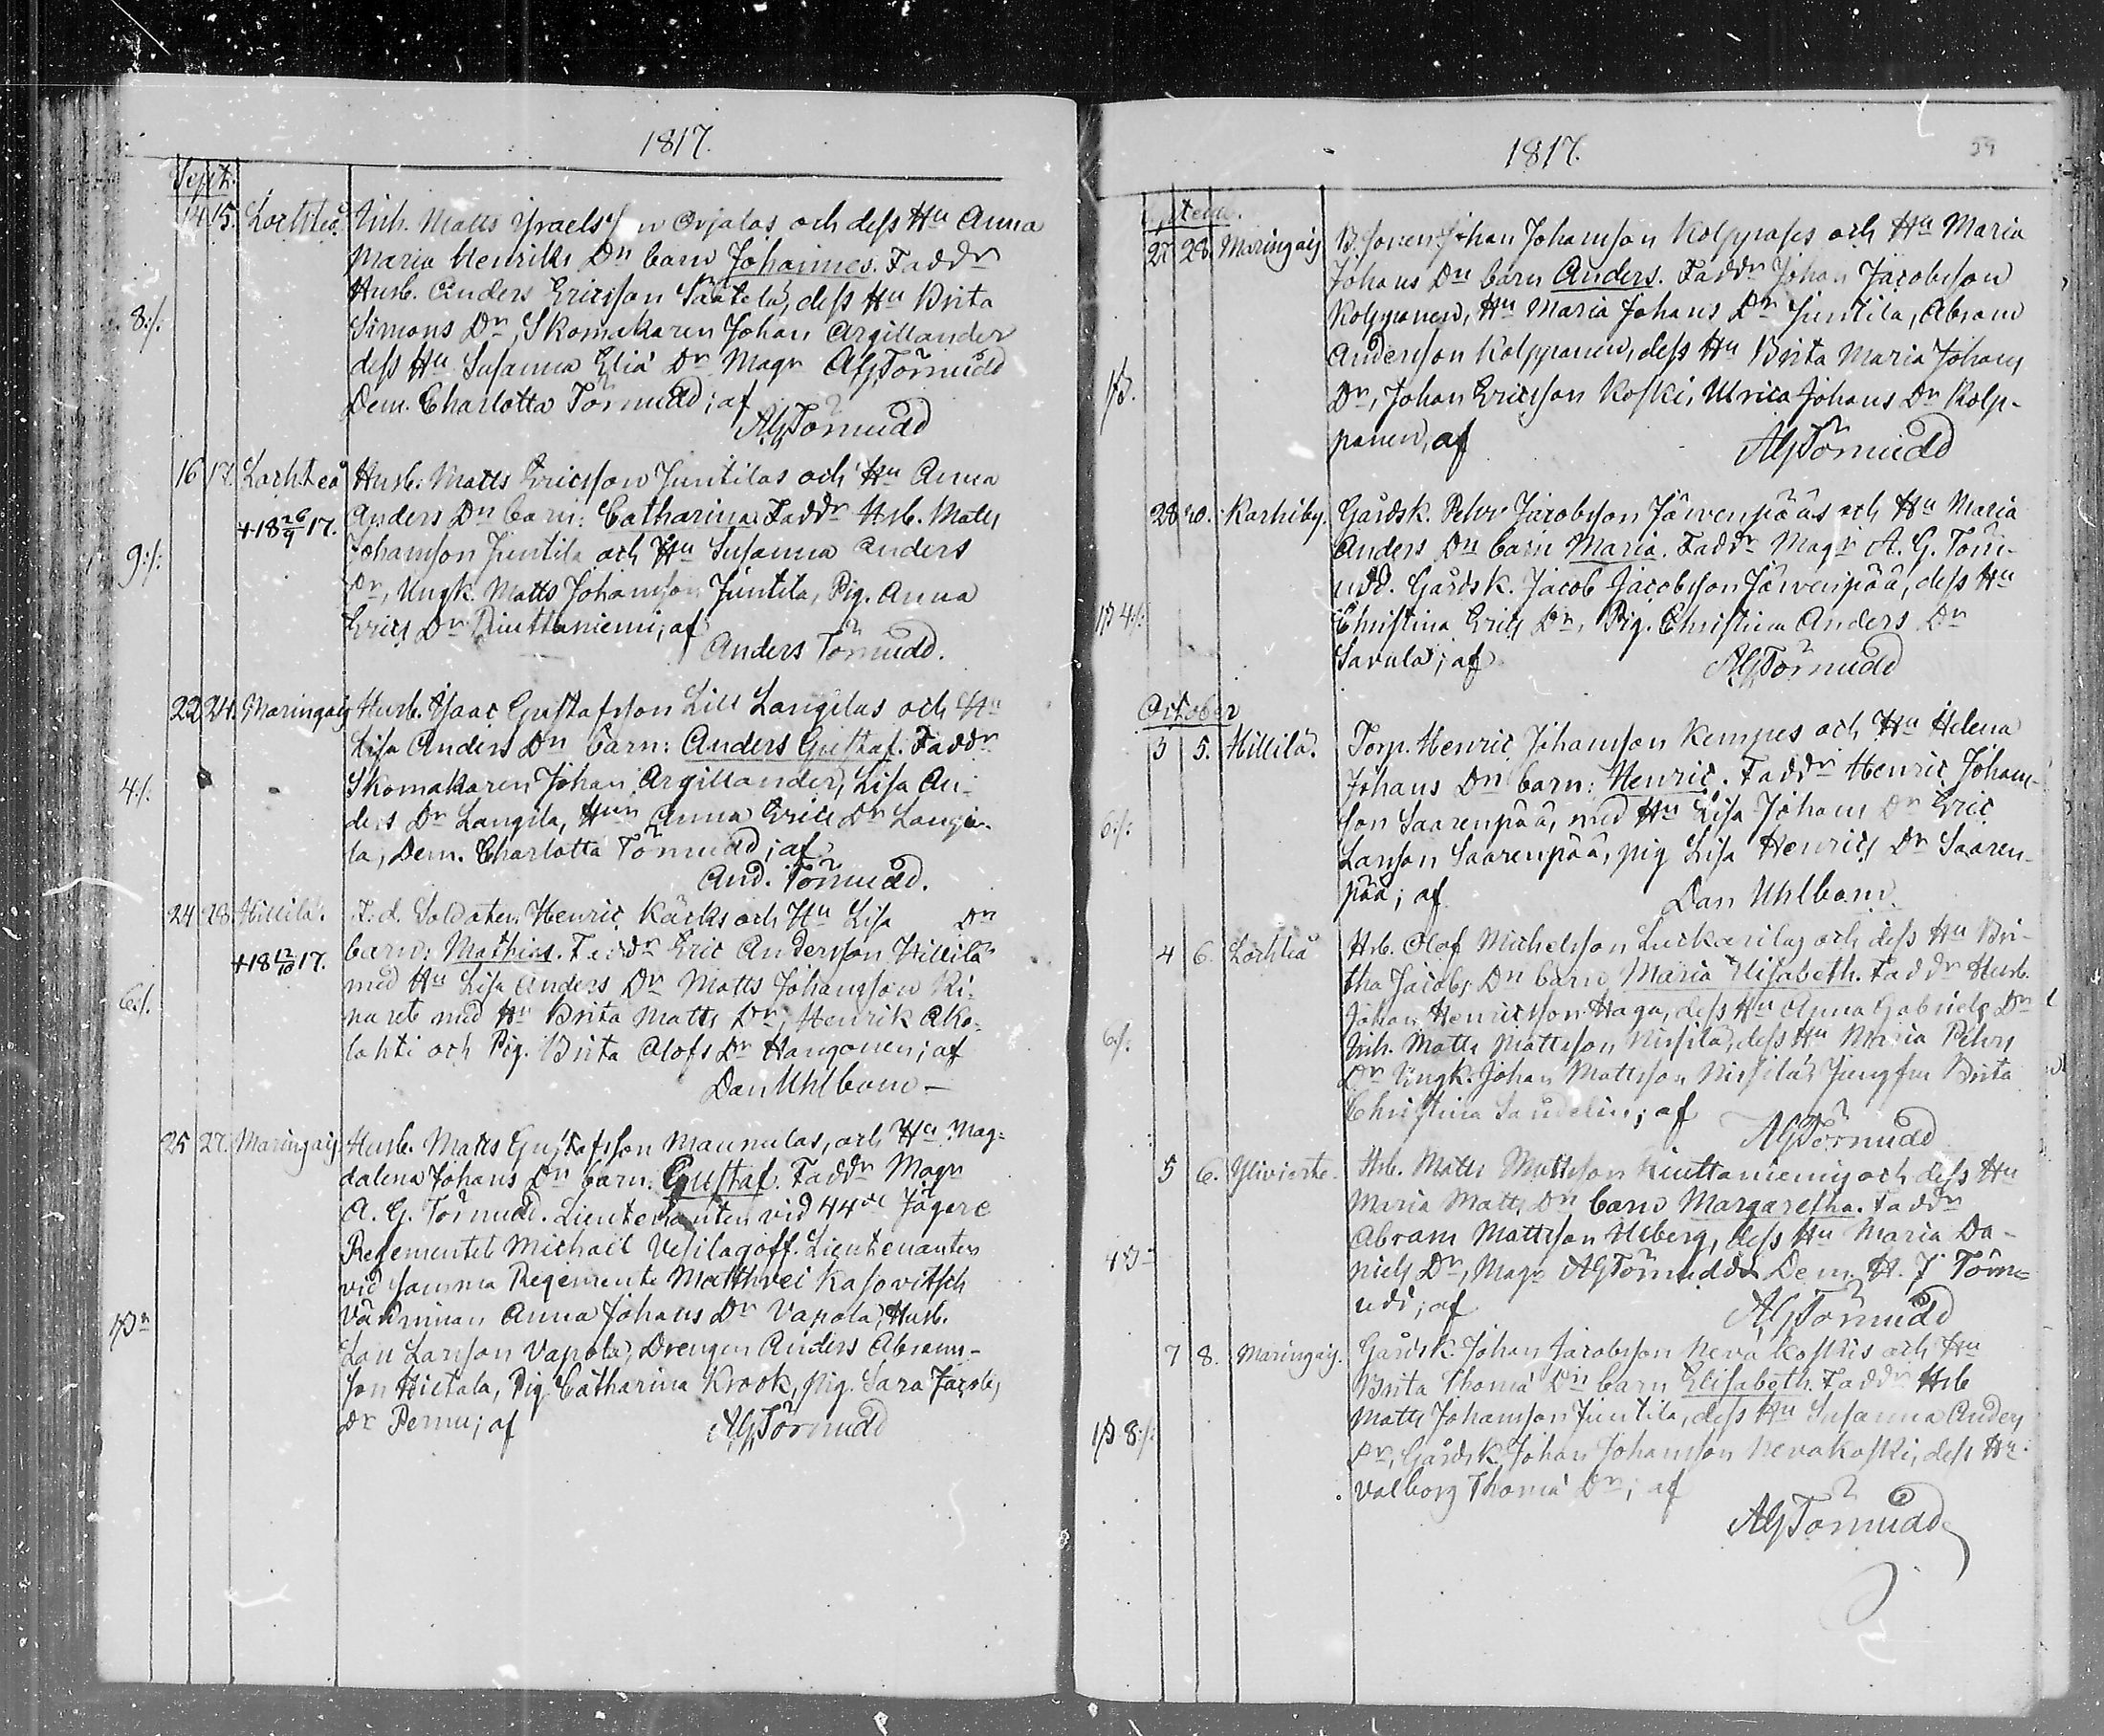 1817.
Sept.
14 15. Lochteå Inh. Matts Israelsson Orjalas och dess Hu Anna
Maria Henriks Dn barn Johannes. Faddr
Husb. Anders Ericsson Saatela, dess Hu Brita
8:/. Simons Dr, Skomakaren Johan Argillander
dess Hu Susanna Eliä Dr Magr AGTörnudd
Dem. Charlotta Törnudd; af
AGTörnudd
16 17. Lochteå Husb: Matts Ericsson Juntilas och Hu Anna
+18 26/9 17. Anders Dn barn: Catharina Faddr Hsb. Matts
9:/: Johansson Juntila och Hu Susanna Anders
Dr, Ungk. Matts Johansson Juntila, Pig. Anna
Erics Dr Riuttaniemi; af
Anders Törnudd.
22 24. Maringais Husb. Isaac Gustafsson Lill Langilas och Hu
Lisa Anders Dn barn: Anders Gustaf. Faddr
4:/. Skomakaren Johan Argillander, Lisa An-
ders Dr Langila, Hun Anna Erics Dr Langi-
la, Dem. Charlotta Törnudd; af
And. Törnudd.
24 28 Hillilä. F.d. Soldaten Henric Käcks och Hu Lisa Dn
+18 12/10 17. barn: Mathias. Faddr Eric Andersson Hillilä
med Hu Lisa Anders Dr Matts Johansson Ki-
6:/. na rete med Hu Brita Matts Dr, Henrik Ako-
lahti och Pig. Brita Olofs Dr Hangonen; af
Dan Uhlbom
25 27. Maringais. Husb. Matts Gustafsson Maunulas, och Hu Mag-
dalena Johans Dn barn. Gustaf. Faddr Magr
A. G. Törnudd. Lieutenanten vid 44de Jägare
Regementet Michael Vesilagoff. Lieutenanten
vid samma Regemente Matthvei Kasovitsch
Värdinnan Anna Johans Dr Vapola, Husb.
Lars Larsson Vapola, Drengen Anders Abrams-
son Hietala, Pig. Catharina Krook, pig. Sara Jacobs
Dr Pernu; af AGTörnudd
1817. 59
27 28. Maringais B.sonen Johan Johansson Kolppases och Hu Maria
Johans Dn barn Anders. Faddr Johan Jacobsson
Kolppanen, Hu Maria Johans Dr Juntila, Abram
Andersson Kolppanen, dess Hu Brita Maria Johans
Dr, Johan Ericsson Koski, Ulrica Johans Dr Kolp-
panen, af AGTörnudd
28 Karhiby. Gårdsk. Pehr Jacobsson Järvenpääs och Hu Maria
Anders Dn barn Maria. Faddr Magr A. G. Törn-
udd. Gårdsk. Jacob Jacobsson Järvenpää, dess Hu
Christina Erics Dr, Pig. Christina Anders Dr
Savula; af AGTörnudd
October
3 5. Hillilä. Torp. Henric Johansson Kempes och Hu Helena
Johans Dn barn: Henric. Faddr Henric Johans-
6:/: son Saarenpää, med Hu Lisa Johans Dr Eric
Larsson Saarenpää, pig Lisa Henrics Dr Saaren-
pää; af Dan Uhlbom.
4 6. Lochteå Hsb. Olof Michelsson Luckarilas och dess Hu Bri-
tha Jacobs Dn barn, Maria Elisabeth. Faddr Husb.
Johan Henricsson Haga, dess Hu Anna Gabriels Dr
6:/: Inh. Matts Mattsson Nissilä, dess Hu Maria Pehrs
Dr Ungk. Johan Mattsson Nissilä, Jungfru Brita
Christina Sandelin; af
AGTörnudd
5 6. Ylivieska. Hsb. Matts Mattsson Riuttaniemis och dess Hu
Maria Matts Dn barn Margaretha. Faddr
Abram Mattsson Ulberg, dess Hu Maria Da-
niels Dr, Magr AGTörnudd Dem. H. J Törn-
udd; af AGTörnudd
7 8. Maringais. Gårdsk. Johan Jacobsson Neva Koskis och Hu
Brita Thomä Dn barn Elisabeth. Faddr Hsb
Matts Johansson Juntila, dess Hu Susanna Anders
Dr, Gårdsk. Johan Johansson Nevakoski, dess Hu
Valborg Thomä Dr; af
AGTörnudd